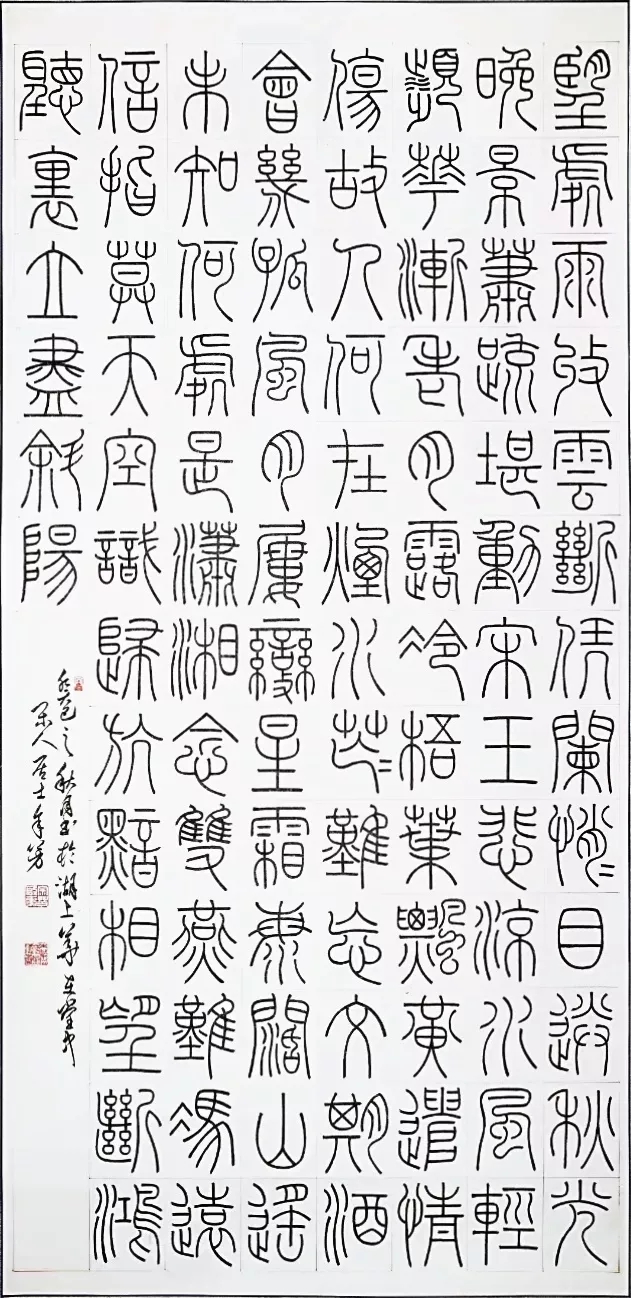 望處雨收雲斷凭闌悄〻目送秋光
晚景蕭疏堪動宋玉悲涼水風輕
蘋華漸老月露冷梧葉飄黃遣情
傷故人何在煙水茫〻難忘文期酒
會幾孤風月屢變星霜海闊山遙
未知何處是瀟湘念雙燕難馮遠
信指莫天空識歸航黯相望斷鴻
聽裏立盡斜陽
之秋月書於湖上
人居士